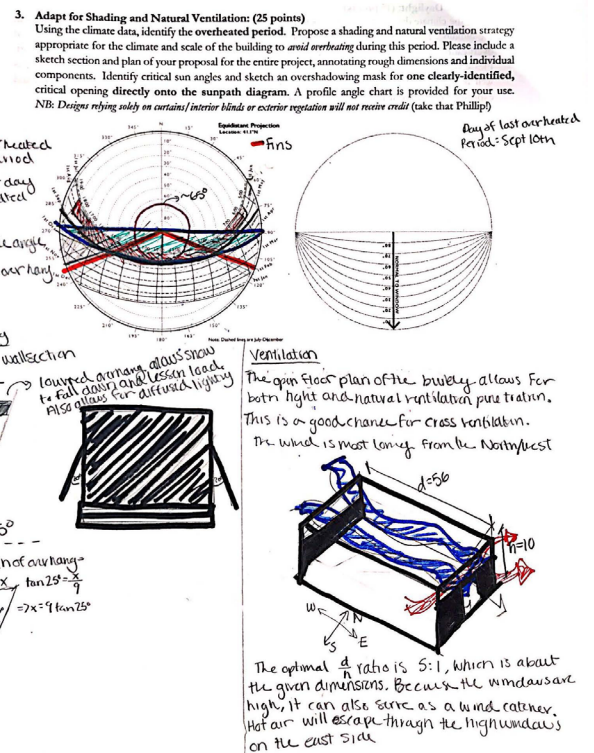 3. Adapt for Shading and Natural Ventilation: (25 points)
Using the climate data, identify the overheated period. Propose a shading and natural ventilation strategy
appropriate for the climate and scale of the building to avoid overheating during this period. Please include a
sketch section and plan of your proposal for the entire project, annotating rough dimensions and individual
components. Identify critical sun angles and sketch an overshadowing mask for one clearly-identified,
critical opening directly onto the sunpath diagram. A profile angle chart is provided for your use.
NB: Designs relying solely on curtains/interior blinds or exterior vegetation will not receive credit (take that Phillip!)
Equidistant Projection
Day of last overheated
Period: Sept 10th
Fins
~65°
heated
day
angle
overhang
NORMAL TO WINDOW
Note: Dashed lines are July-December
wall section
louvred overhang allows snow
to fall down and lessen load.
Also allows for diffused lighting
of overhang=
tan25°=x/9
=>x=9tan25°
Ventilation
The open floor plan of the allows for
both light and natural ventilation
This is a good chance for cross ventilation.
The wind is most from the North/West
d=56
h=10
W
N
S
E
The optimal d/h ratio is 5:1, which is about
the given dimensions. Because the windows are
high, it can also serve as a wind catcher.
Hot air will escape through the high windows
on the east side